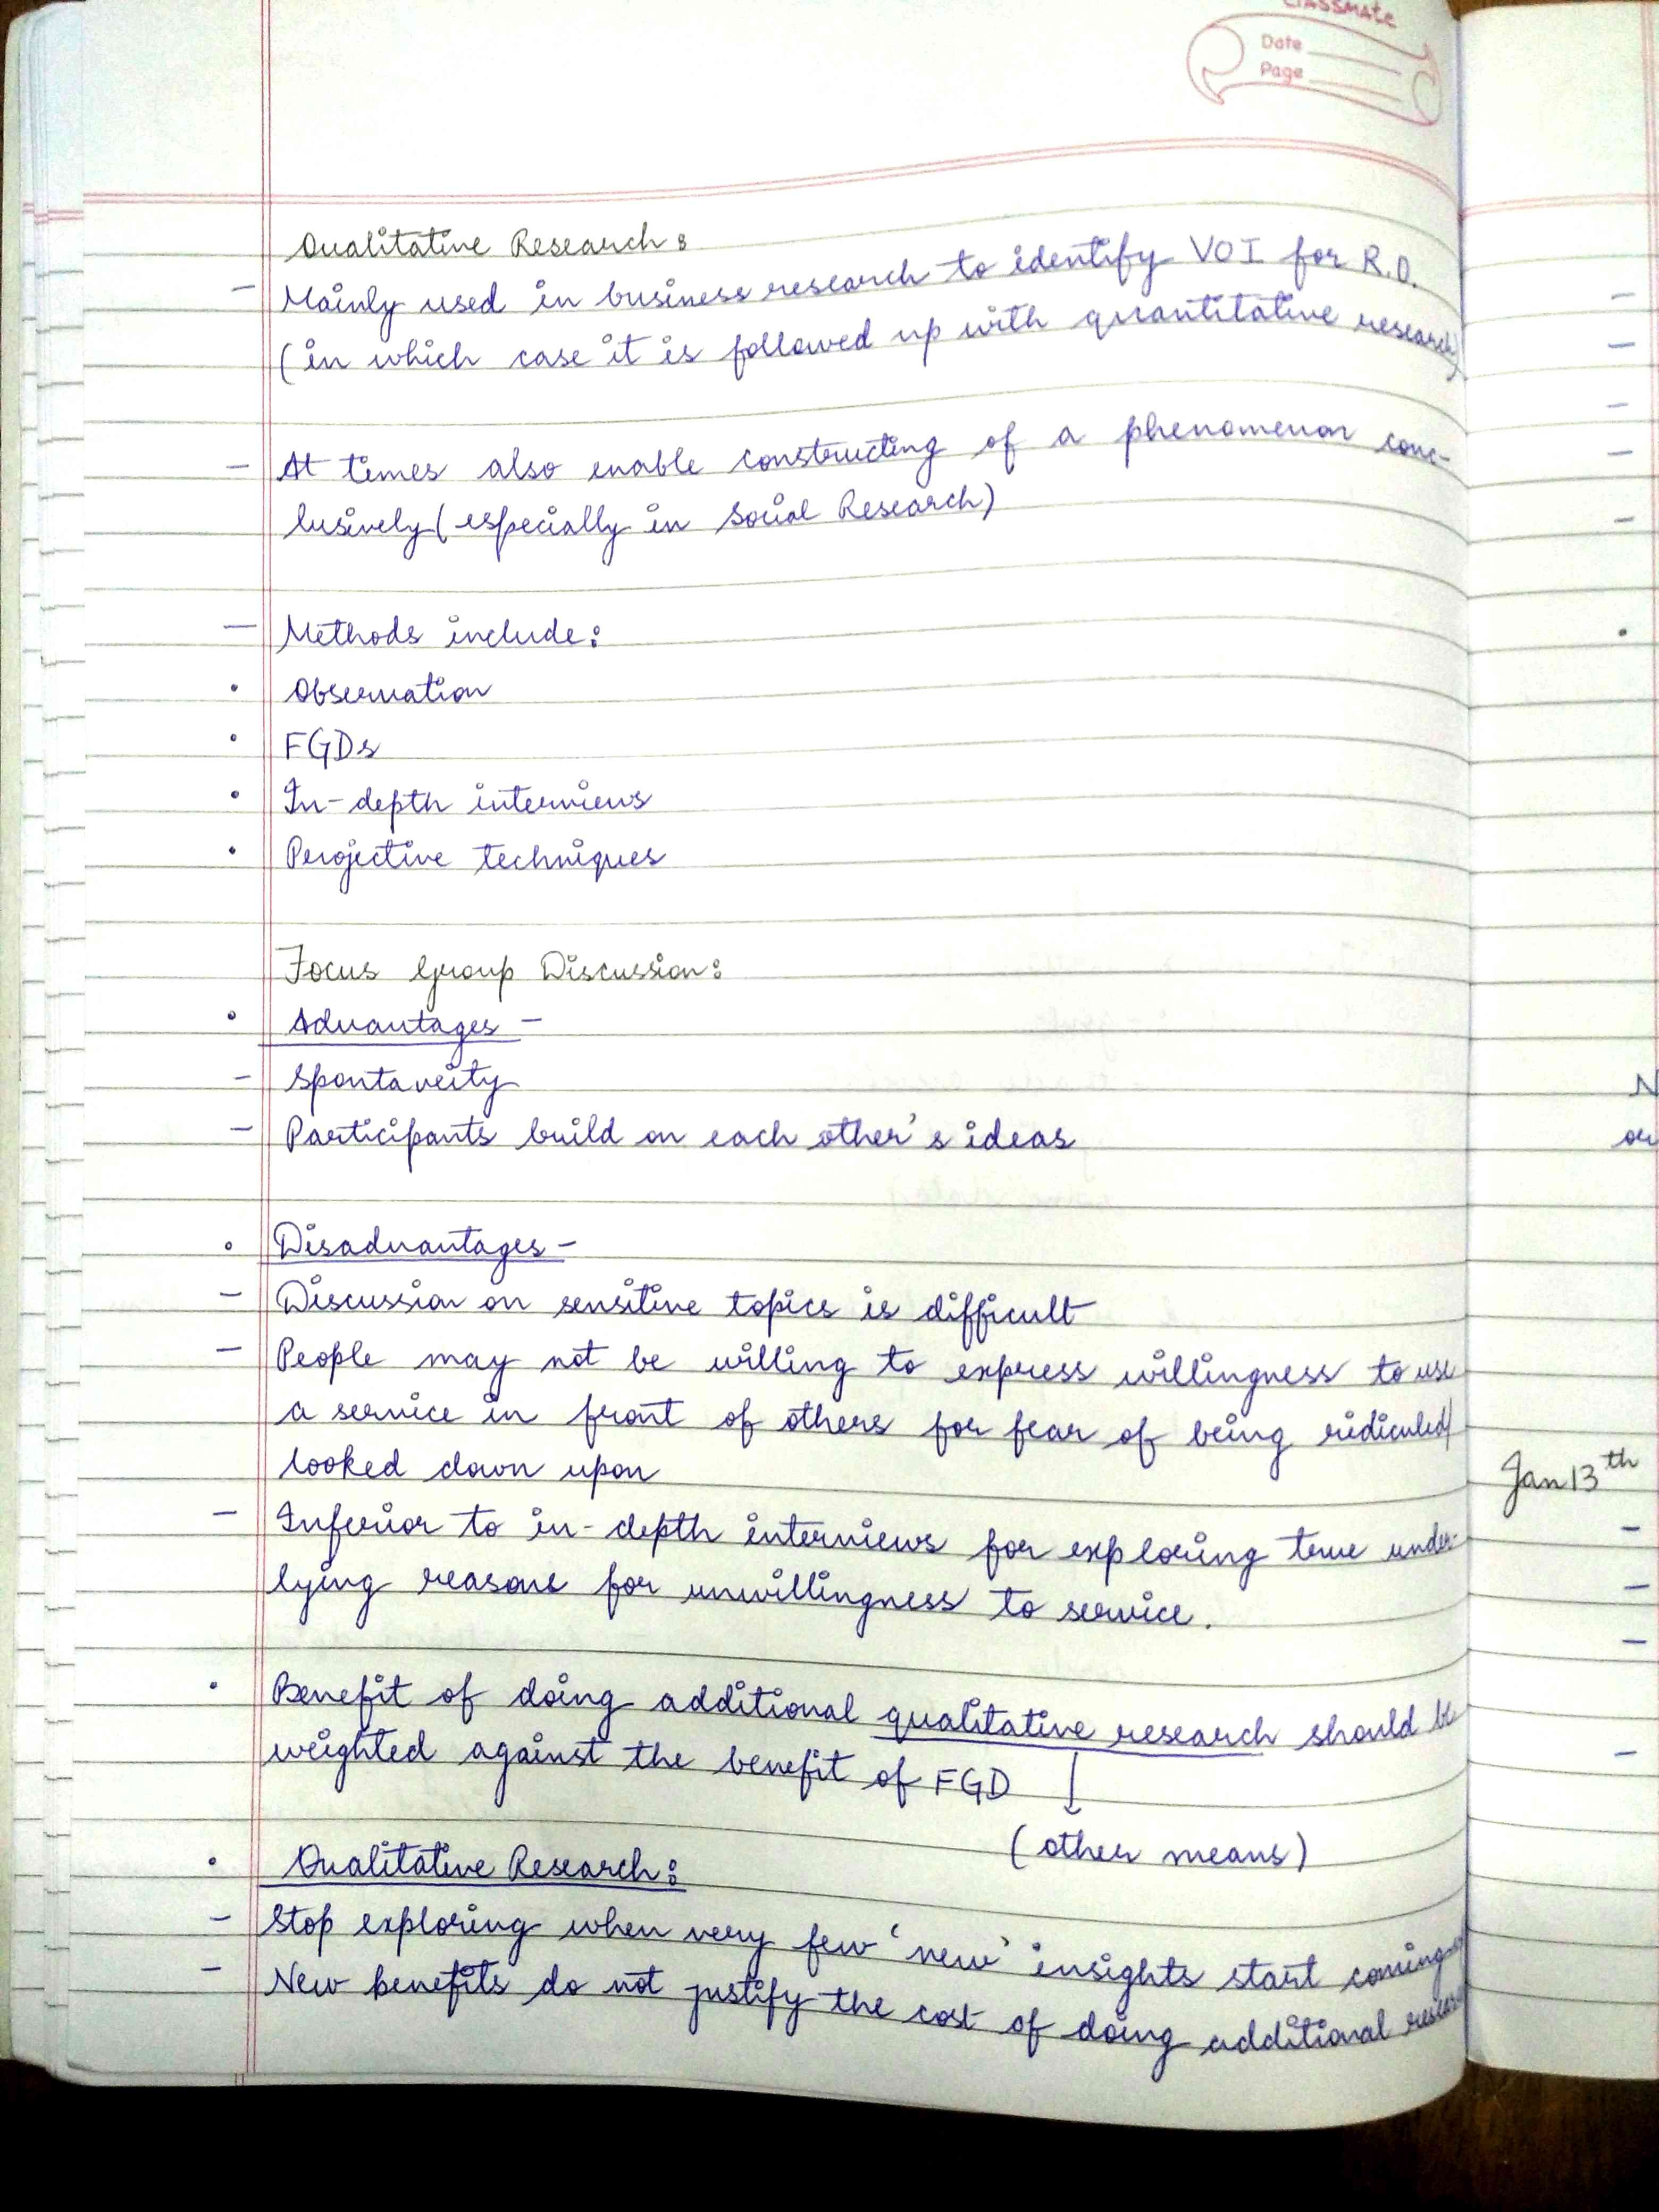 classmate
Date
Page
Qualitative Research:
- Mainly used in business research to identify VOI for R.O.
(in which case it is followed up with quantitative research)
- At times also enable constructing of a phenomenon conc-
lusively (especially in Social Research)
- Methods include:
• Observation
• FGDs
• In-depth interviews
• Projective techniques
Focus Group Discussion:
• Advantages -
- Spontaneity
- Participants build on each other's ideas
• Disadvantages -
- Discussion on sensitive topics is difficult
- People may not be willing to express willingness to use
a service in front of others for fear of being ridiculed/
looked down upon
- Inferior to in-depth interviews for exploring true under-
lying reasons for unwillingness to service.
• Benefit of doing additional qualitative research should be
weighted against the benefit of FGD ↓
(other means)
• Qualitative Research:
- Stop exploring when very few 'new' insights start coming
- New benefits do not justify the cost of doing additional research
Jan 13th